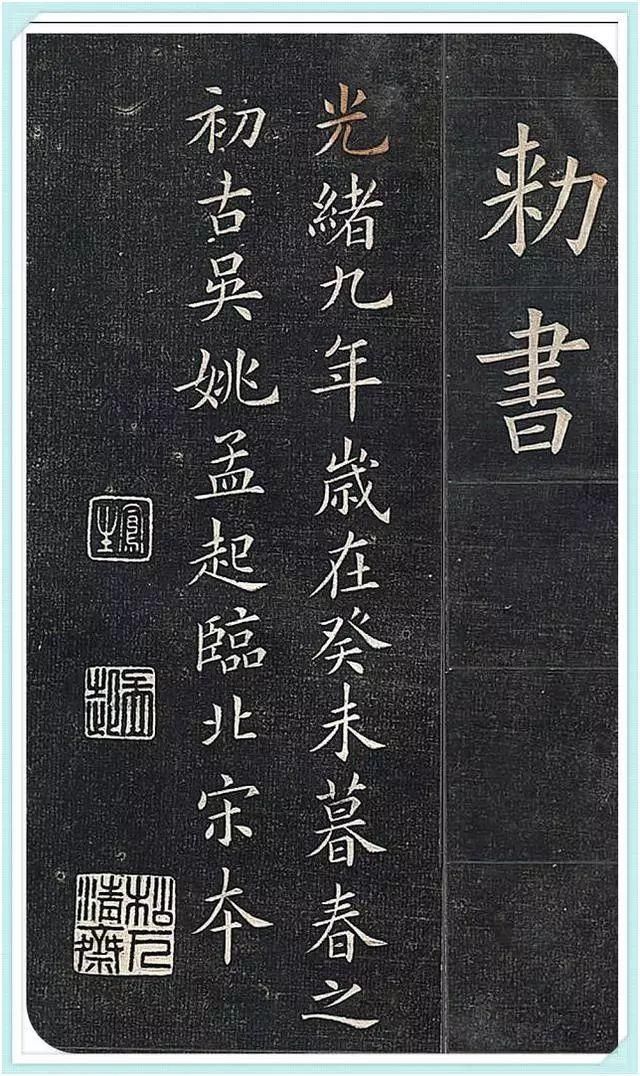 勑書
光緒九年嵗在癸未暮春之
初古吳姚孟起臨北宋本
鳳生
孟起
松下清齋